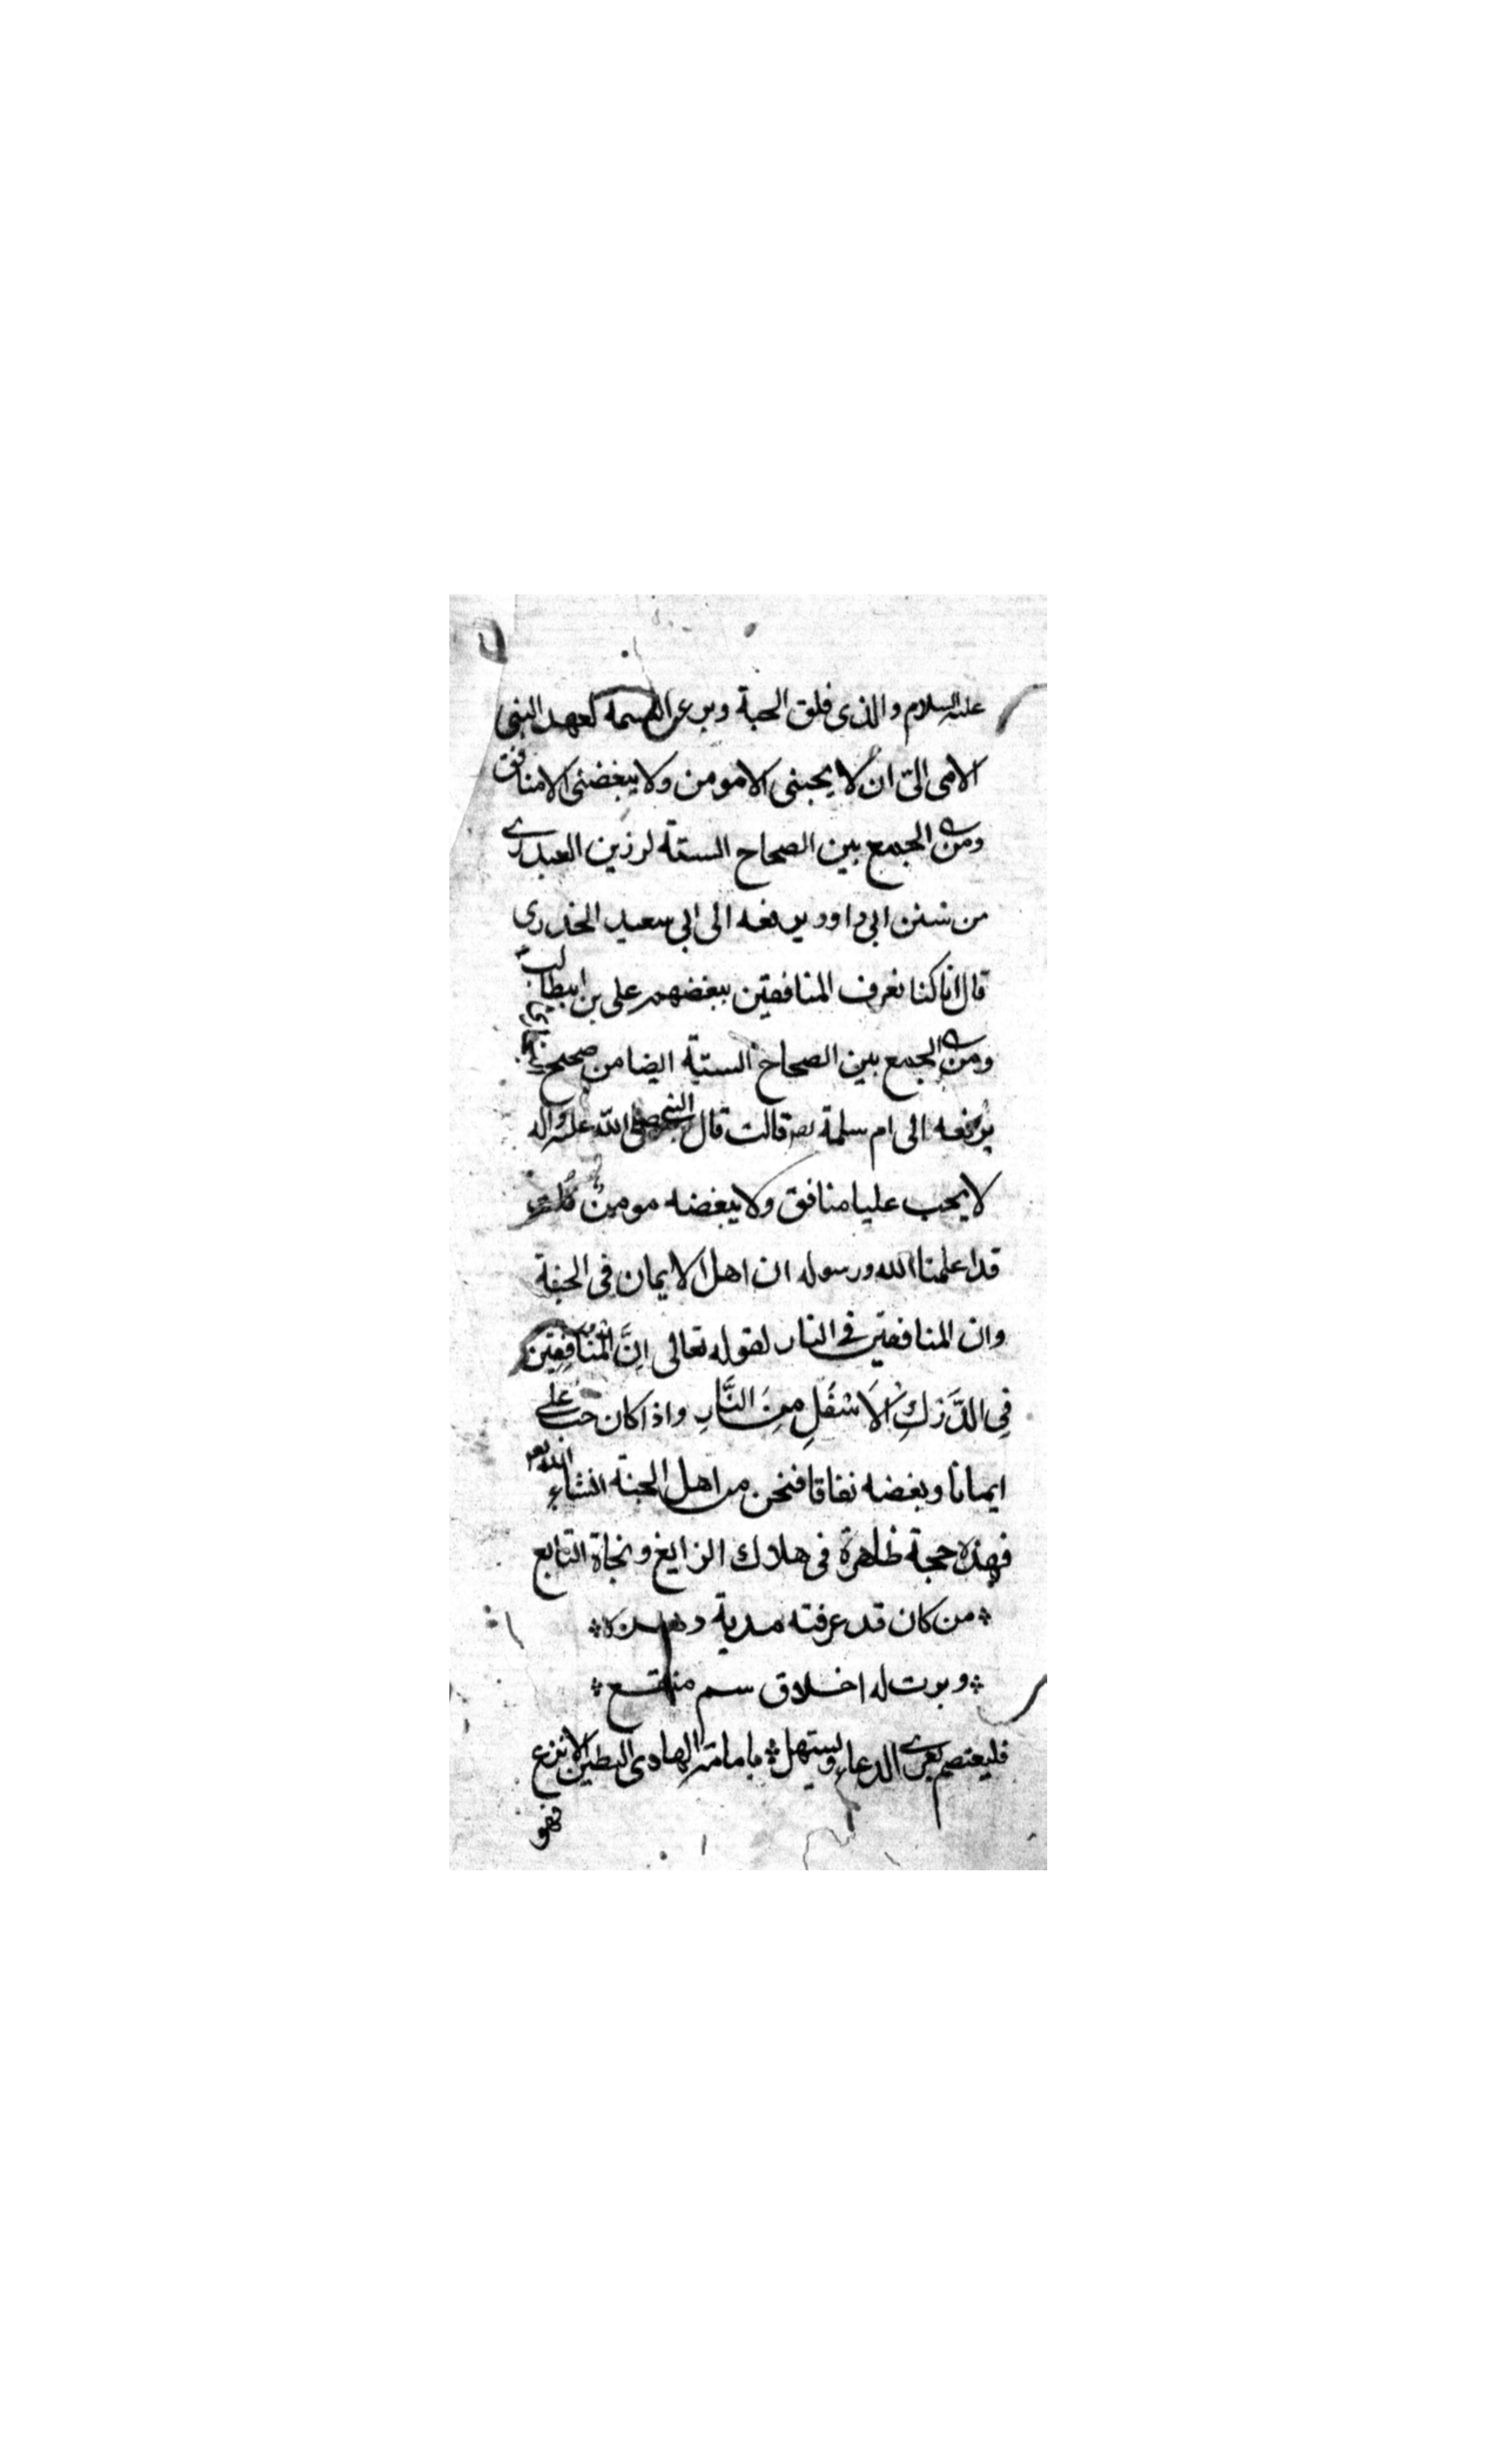 عليه السلام والذى فلق الحبة وبرء النسمة لعهد النبى
الامى الىّ ان لا يحبنى الا مومن ولا يبغضنى الا منافق
ومن الجمع بين الصحاح الستة لرزين العبدرى
من سنن ابى داوود يرفعه الى ابى سعيد الخدرى
قال انا كنا نعرف المنافقين ببغضهم على بن ابيطالب
ومن الجمع بين الصحاح الستة ايضا من صحيح
يرفعه الى ام سلمة قالت قال النبى صلى الله عليه واله
لا يحب عليا منافق ولا يبغضه مومنٌ قلت
قد اعلمنا الله ورسوله ان اهل الايمان فى الجنة
وان المنافقين فى النار لقوله تعالى اِنَّ الْمُنَافِقِين
فِى الدَّرْكِ الْاَسْفَلِ مِنَ النَّارِ واذا كان حب على
ايمانا وبغضه نفاقا فنحن من اهل الجنة انشاء الله تعه
فهذه حجة ظاهرة فى هلاك الزايغ ونجاة التابع
من كان قد عرفته مدية
له اخلاق سم منقع
فليعتصم بعرى الدعاء ويستهل بامامة الهادى البطين الانزع
فهو